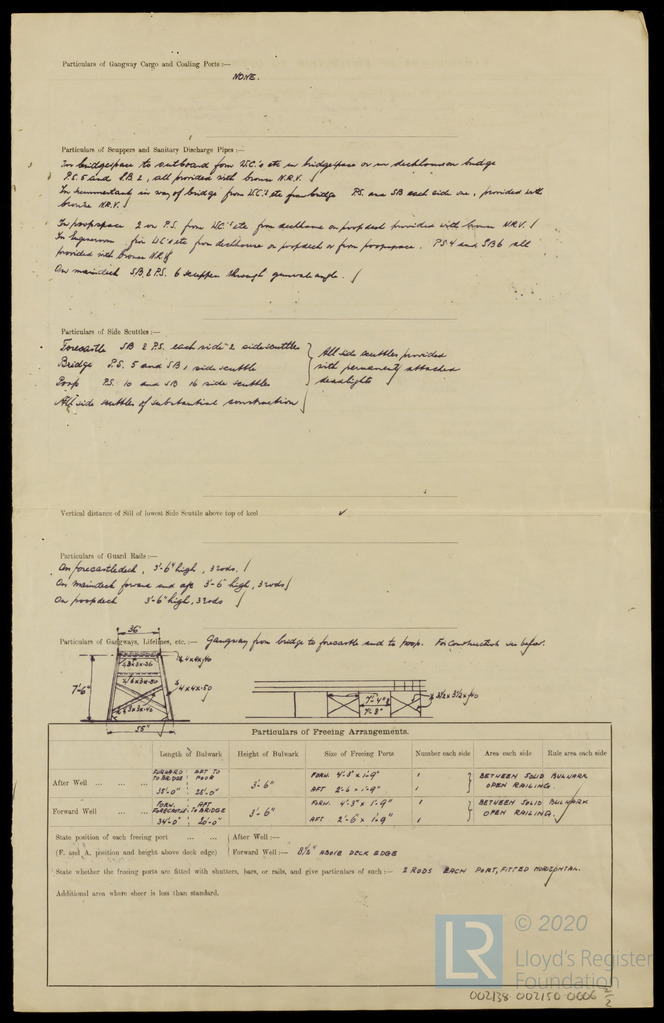 Particulars of Gangway Cargo and Coaling Ports :—
NONE.
Particulars of Scuppers and Sanitary Discharge Pipes :—
In bridgespace to outboard from W.C.'s etc in bridgespace or in deckhouse on bridge
P.S. 5 and S.B. 2, all provided with bronze N.R.V.
in way of bridge, from W.C.'s etc from bridge P.S. one SB each side one, provided with
bronze N.R.V.
In poopspace 2 on P.S. from W.C's etc from deckhouse on poopdeck provided with bronze N.R.V.
In Engineroom from W.C's etc from deckhouse on poopdeck or from poopspace. P.S 4 and S.B 6 all
provided with bronze N.R.V
On maindeck S.B, & P.S. 6 scuppers through gunwale angle.
Particulars of Side Scuttles :—
Forecastle SB & P.S. each side 2 sidescuttles
Bridge P.S. 5 and S.B 1 side scuttle
Poop P.S. 10 and S.B 16 side scuttles
All side scuttles of substantial construction
All side scuttles provided
with permanently attached
deadlights
Vertical distance of Sill of lowest Side Scuttle above top of keel
Particulars of Guard Rails :—
On forecastledeck, 3'-6" high, 3 rods.
On maindeck forward and aft 3'-6" high, 3 rods
On poopdeck 3'-6" high, 3 rods
Particulars of Gangways, Lifelines, etc. :— Gangway from bridge to forecastle and to poop. For construction see below.
36"
7'-6"
4x4x.50
55"
7'-8"
Particulars of Freeing Arrangements.
Length of Bulwark Height of Bulwark Size of Freeing Ports Number each side Area each side Rule area each side
After Well ... ... ... FORWARD TO BRIDGE 35'-0" AFT TO POOP 28'-0" 3'-6" FORW. 4'-3" x 1'-9" 1 BETWEEN SOLID BULWARK
AFT 2'-6 x 1'-9" 1 OPEN RAILING.
Forward Well ... ... FORW. FORECASTLE 34'-0" AFT TO BRIDGE 20'-0" 3'-6" FORW. 4'-3" x 1'-9" 1 BETWEEN SOLID BULWARK
AFT 2'-6" x 1'-9" 1 OPEN RAILING.
State position of each freeing port ... ... After Well :—
(F. and A. position and height above deck edge) Forward Well :— 8½" ABOVE DECK EDGE
State whether the freeing ports are fitted with shutters, bars, or rails, and give particulars of such :— 2 RODS EACH PORT, FITTED HORIZONTAL.
Additional area where sheer is less than standard.
LR
© 2020
Lloyd's Register
Foundation
002138-002150-0006 2/2